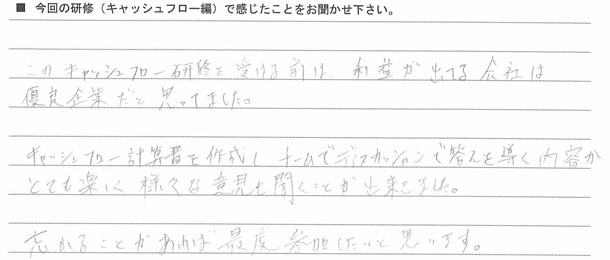 ■ 今回の研修（キャッシュフロー編）で感じたことをお聞かせ下さい。
このキャッシュフロー研修を受ける前は、利益が出てる会社は
優良企業だと思ってました。
キャッシュフロー計算書を作成し チームでディスカッションで答えを導く内容が
とても楽しく 様々な意見も聞くことが出来ました。
忘れることがあれば 最度 参加したいと思います。